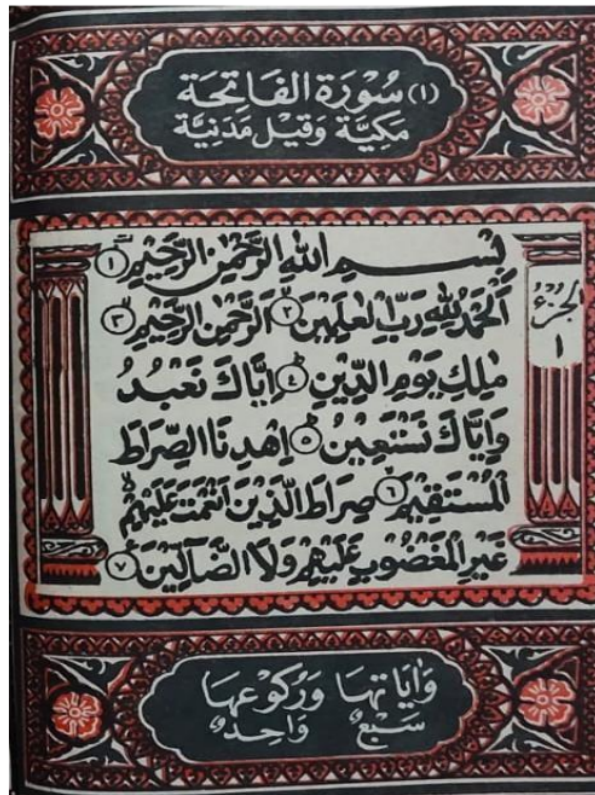 (١) سُوْرَةُ الفَاتِحَة
مَكِيَّة وَقِيْل مَدَنِيَّة
بِسْمِ اللهِ الرَّحْمٰنِ الرَّحِيْمِ ١
اَلْحَمْدُ لِلّٰهِ رَبِّ الْعٰلَمِيْنَ ٢ اَلرَّحْمٰنِ الرَّحِيْمِ ٣
مٰلِكِ يَوْمِ الدِّيْنِ ٤ اِيَّاكَ نَعْبُدُ
وَاِيَّاكَ نَسْتَعِيْنُ ٥ اِهْدِنَا الصِّرَاطَ
الْمُسْتَقِيْمَ ٦ صِرَاطَ الَّذِيْنَ اَنْعَمْتَ عَلَيْهِمْ
غَيْرِ الْمَغْضُوْبِ عَلَيْهِمْ وَلَا الضَّآلِّيْنَ ٧
الجُزْءُ
١
وَاٰيَاتُهَا وَرُكُوْعُهَا
سَبْعٌ وَاحِدٌ